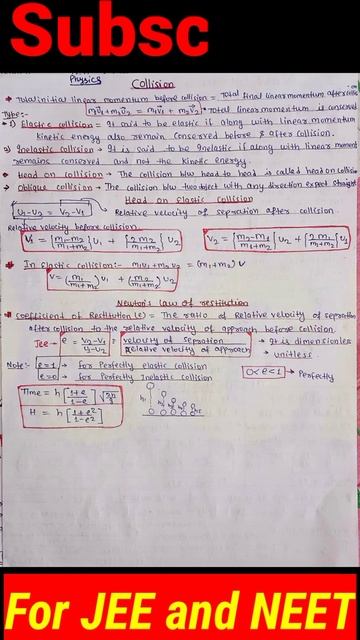 Subsc
Physics
Collision
* Total initial linear momentum before collision = Total final linear momentum after collision
m₁u⃗₁ + m₂u⃗₂ = m₁v⃗₁ + m₂v⃗₂ * Total linear momentum is conserved
Type:-
1) Elastic collision = It is said to be elastic if along with linear momentum
kinetic energy also remain conserved before & after collision.
2) Inelastic collision → It is said to be Inelastic if along with linear moment
remains conserved and not the kinetic energy.
* Head on Collision → The collision b/w head to head is called head on collision
* Oblique collision → The collision b/w two object with any direction expect straight
Head on Elastic collision
U₁-U₂ = V₂-V₁ Relative velocity of sepration after collision
Relative velocity before collision.
V₁ = [m₁-m₂/m₁+m₂] U₁ + [2m₂/m₁+m₂] U₂
V₂ = [m₂-m₁/m₁+m₂] U₂ + [2m₁/m₁+m₂] U₁
* In Elastic collision:- m₁u₁ + m₂u₂ = (m₁+m₂) v
V = (m₁/m₁+m₂) u₁ + (m₂/m₁+m₂) u₂
Newton's law of restitution
* Coefficient of Restitution (e) = The ratio of Relative velocity of sepration
after collision to the relative velocity of approach before collision.
Jee → e = V₂-V₁/U₁-U₂ = velocity of sepration/Relative velocity of approach → It is dimensionless
→ unitless.
Note:- e=1 → for Perfectly elastic collision
e=0 → for Perfectly Inelastic collision
0<e<1 → Perfectly
Time = h [1+e/1-e] √2h/g
H = h [1+e²/1-e²]
For JEE and NEET